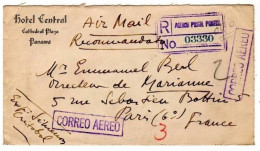 Hotel Central
Cathedral Plaza
Panama
Air Mail
Recommandé
R
AGENCIA POSTAL PANAMA
No 03330
CORREO AEREO
2
Mr Emmanuel Berl
Directeur de Marianne
5 rue Sébastien Bottin
Paris (6e)
France
CORREO AEREO
3
Cristobal